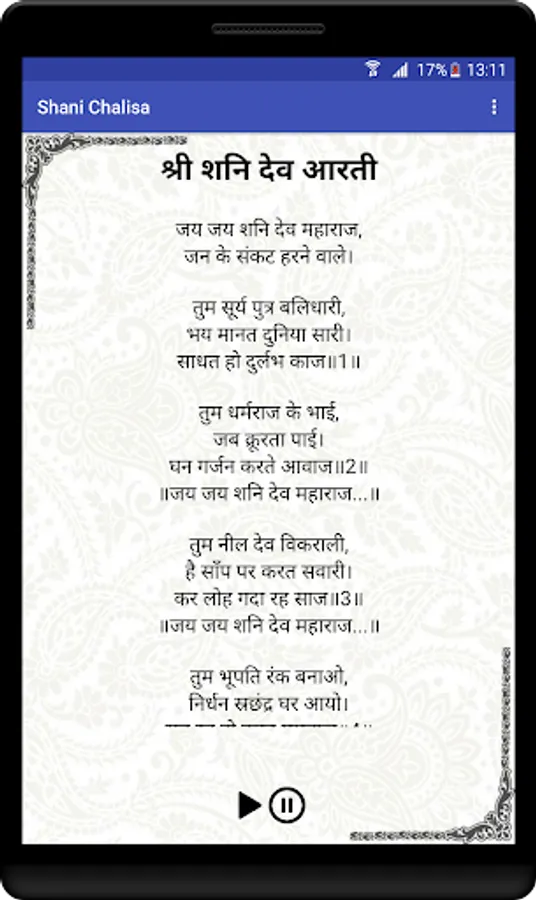 17% 13:11
Shani Chalisa
श्री शनि देव आरती
जय जय शनि देव महाराज,
जन के संकट हरने वाले।
तुम सूर्य पुत्र बलिधारी,
भय मानत दुनिया सारी।
साधत हो दुर्लभ काज॥1॥
तुम धर्मराज के भाई,
जब क्रूरता पाई।
घन गर्जन करते आवाज॥2॥
॥जय जय शनि देव महाराज...॥
तुम नील देव विकराली,
है साँप पर करत सवारी।
कर लोह गदा रह साज॥3॥
॥जय जय शनि देव महाराज...॥
तुम भूपति रंक बनाओ,
निर्धन स्रछंद्र घर आयो।